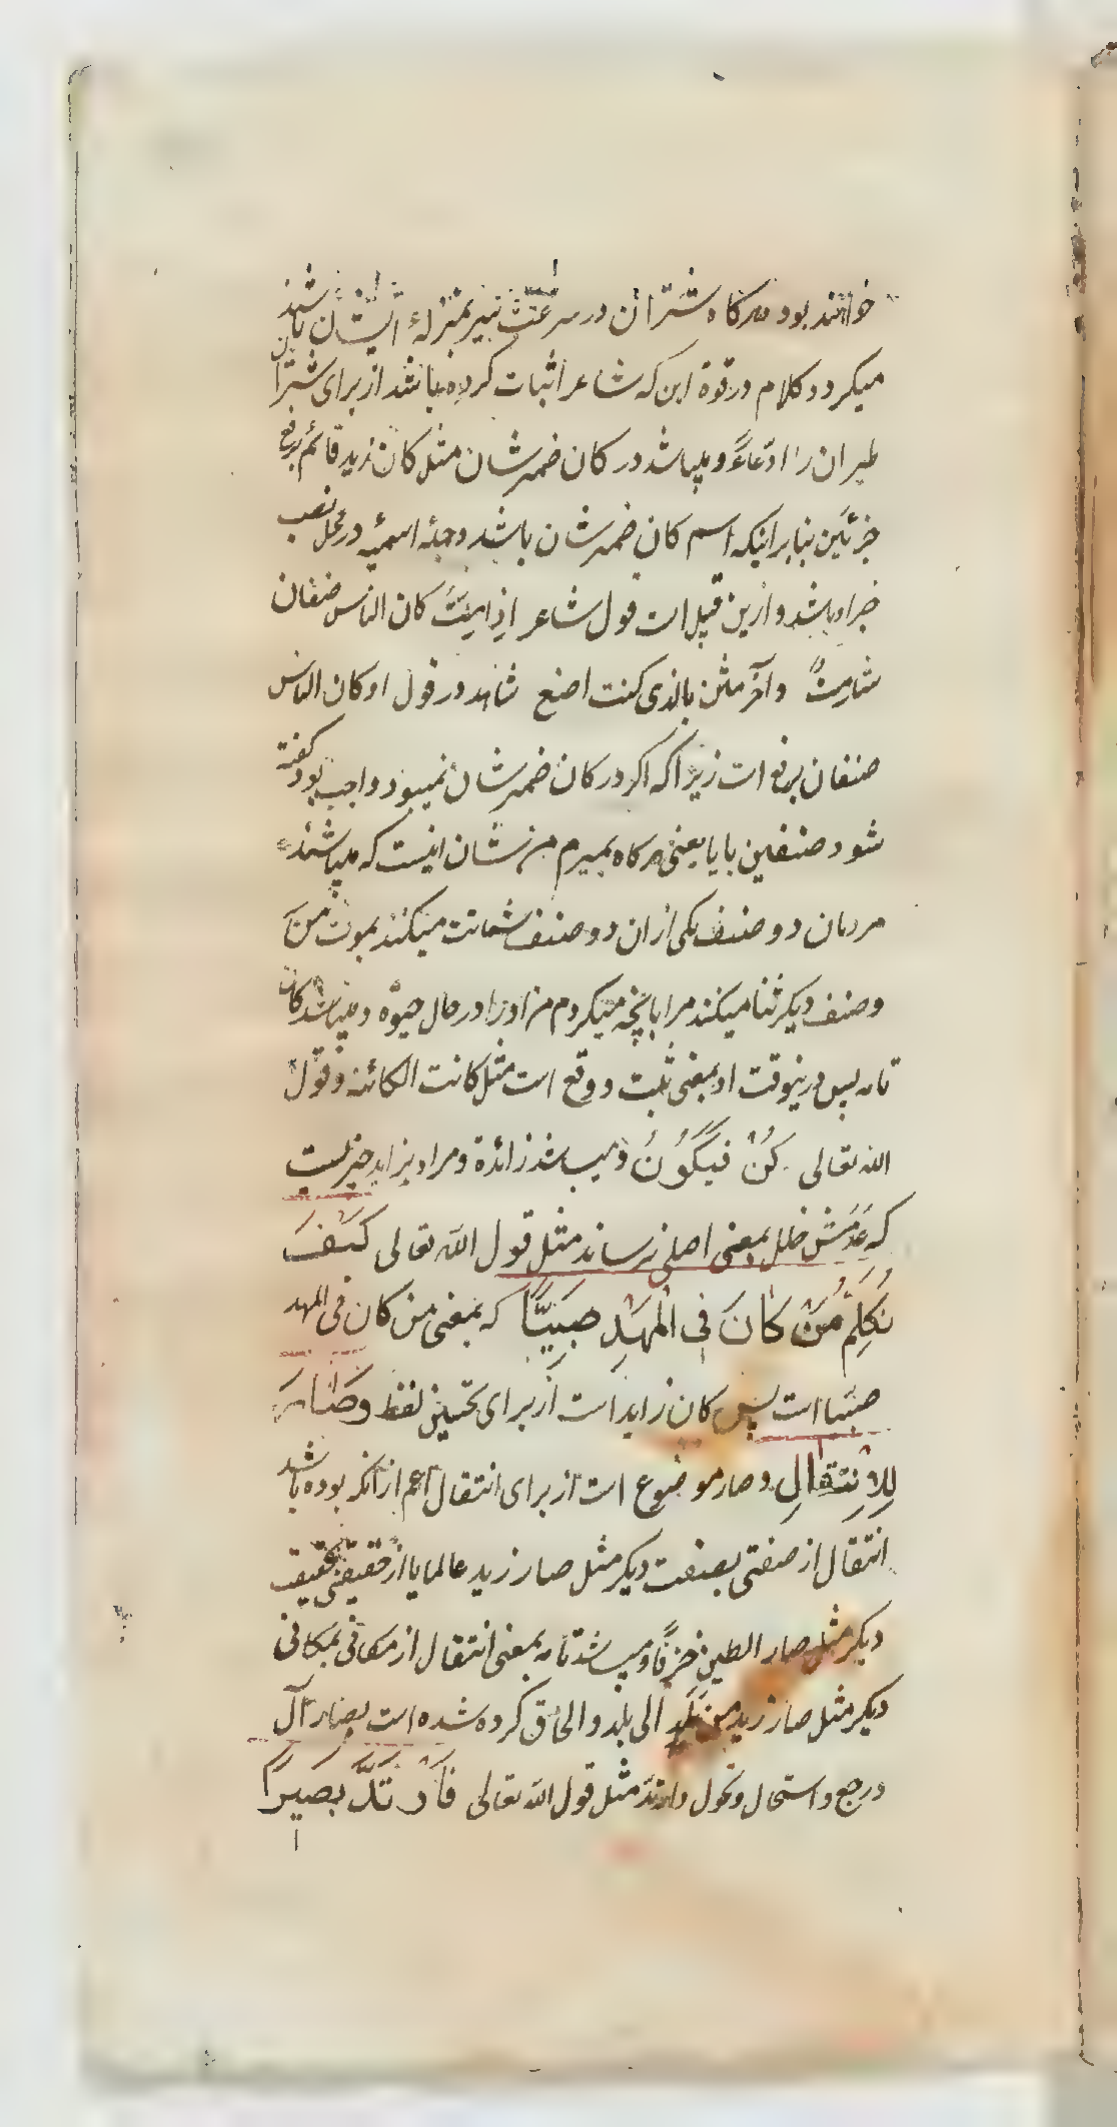 خواهند بود هرکاه شتران در سرعت سیر بمنزلهٔ ایشان باشند
میکردد کلام در قوة این که شاعر اثبات کرده باشد از برای شتران
طیران را ادّعاءً و میباشد در کان ضمیر شان مثل کان زید قائم برفع
جزئین بنابر اینکه اسم کان ضمیر شان باشد و جملهٔ اسمیه در محل نصب
خبر او باشد و ازین قبیل است قول شاعر اذا متّ کان الناس صنفان
شامتٌ و آخر مثن بالذی کنت اصنع شاهد در قول او کان الناس
صنفان برفع است زیرا که اکر در کان ضمیر شان نمیبود واجب بود کفته
شود صنفین بایا یعنی هرکاه بمیرم من شان اینست که میباشند
مردمان دو صنف یکی از ان دو صنف شماتت میکنند بموت من
و صنف دیکر ثنا میکنند مرا بانچه میکردم من اورا در حال حیوة و میباشد کان
تامه پس درینوقت او بمعنی ثبت و وقع است مثل کانت الکائنة و قول
الله تعالی کُنْ فَیَکُونُ و میباشد زائدة و مراد بزاید چیزیست
که عدمش خلل بمعنی اصلی نرساند مثل قول الله تعالی کَیْفَ
نُکَلِّمُ مَنْ کَانَ فِی الْمَهْدِ صَبِیًّا که بمعنی من کان فی المهد
صبیا است پس کان زاید است از برای تحسین لفظ وَصَارَ
لِلِانْتِقَالِ و صار موضوع است از برای انتقال اعم از آنکه بوده باشد
انتقال از صفتی بصفت دیکر مثل صار زید عالما یا از حقیقتی بحقیقت
دیکر مثل صار الطین خزفًا و میباشد تامه بمعنی انتقال از مکانی بمکانی
دیکر مثل صار زید من بلد الی بلد و الحاق کرده شده است بصار آل
و رجع و استحال و تحول و ارتد مثل قول الله تعالی فَارْتَدَّ بَصِیرًا